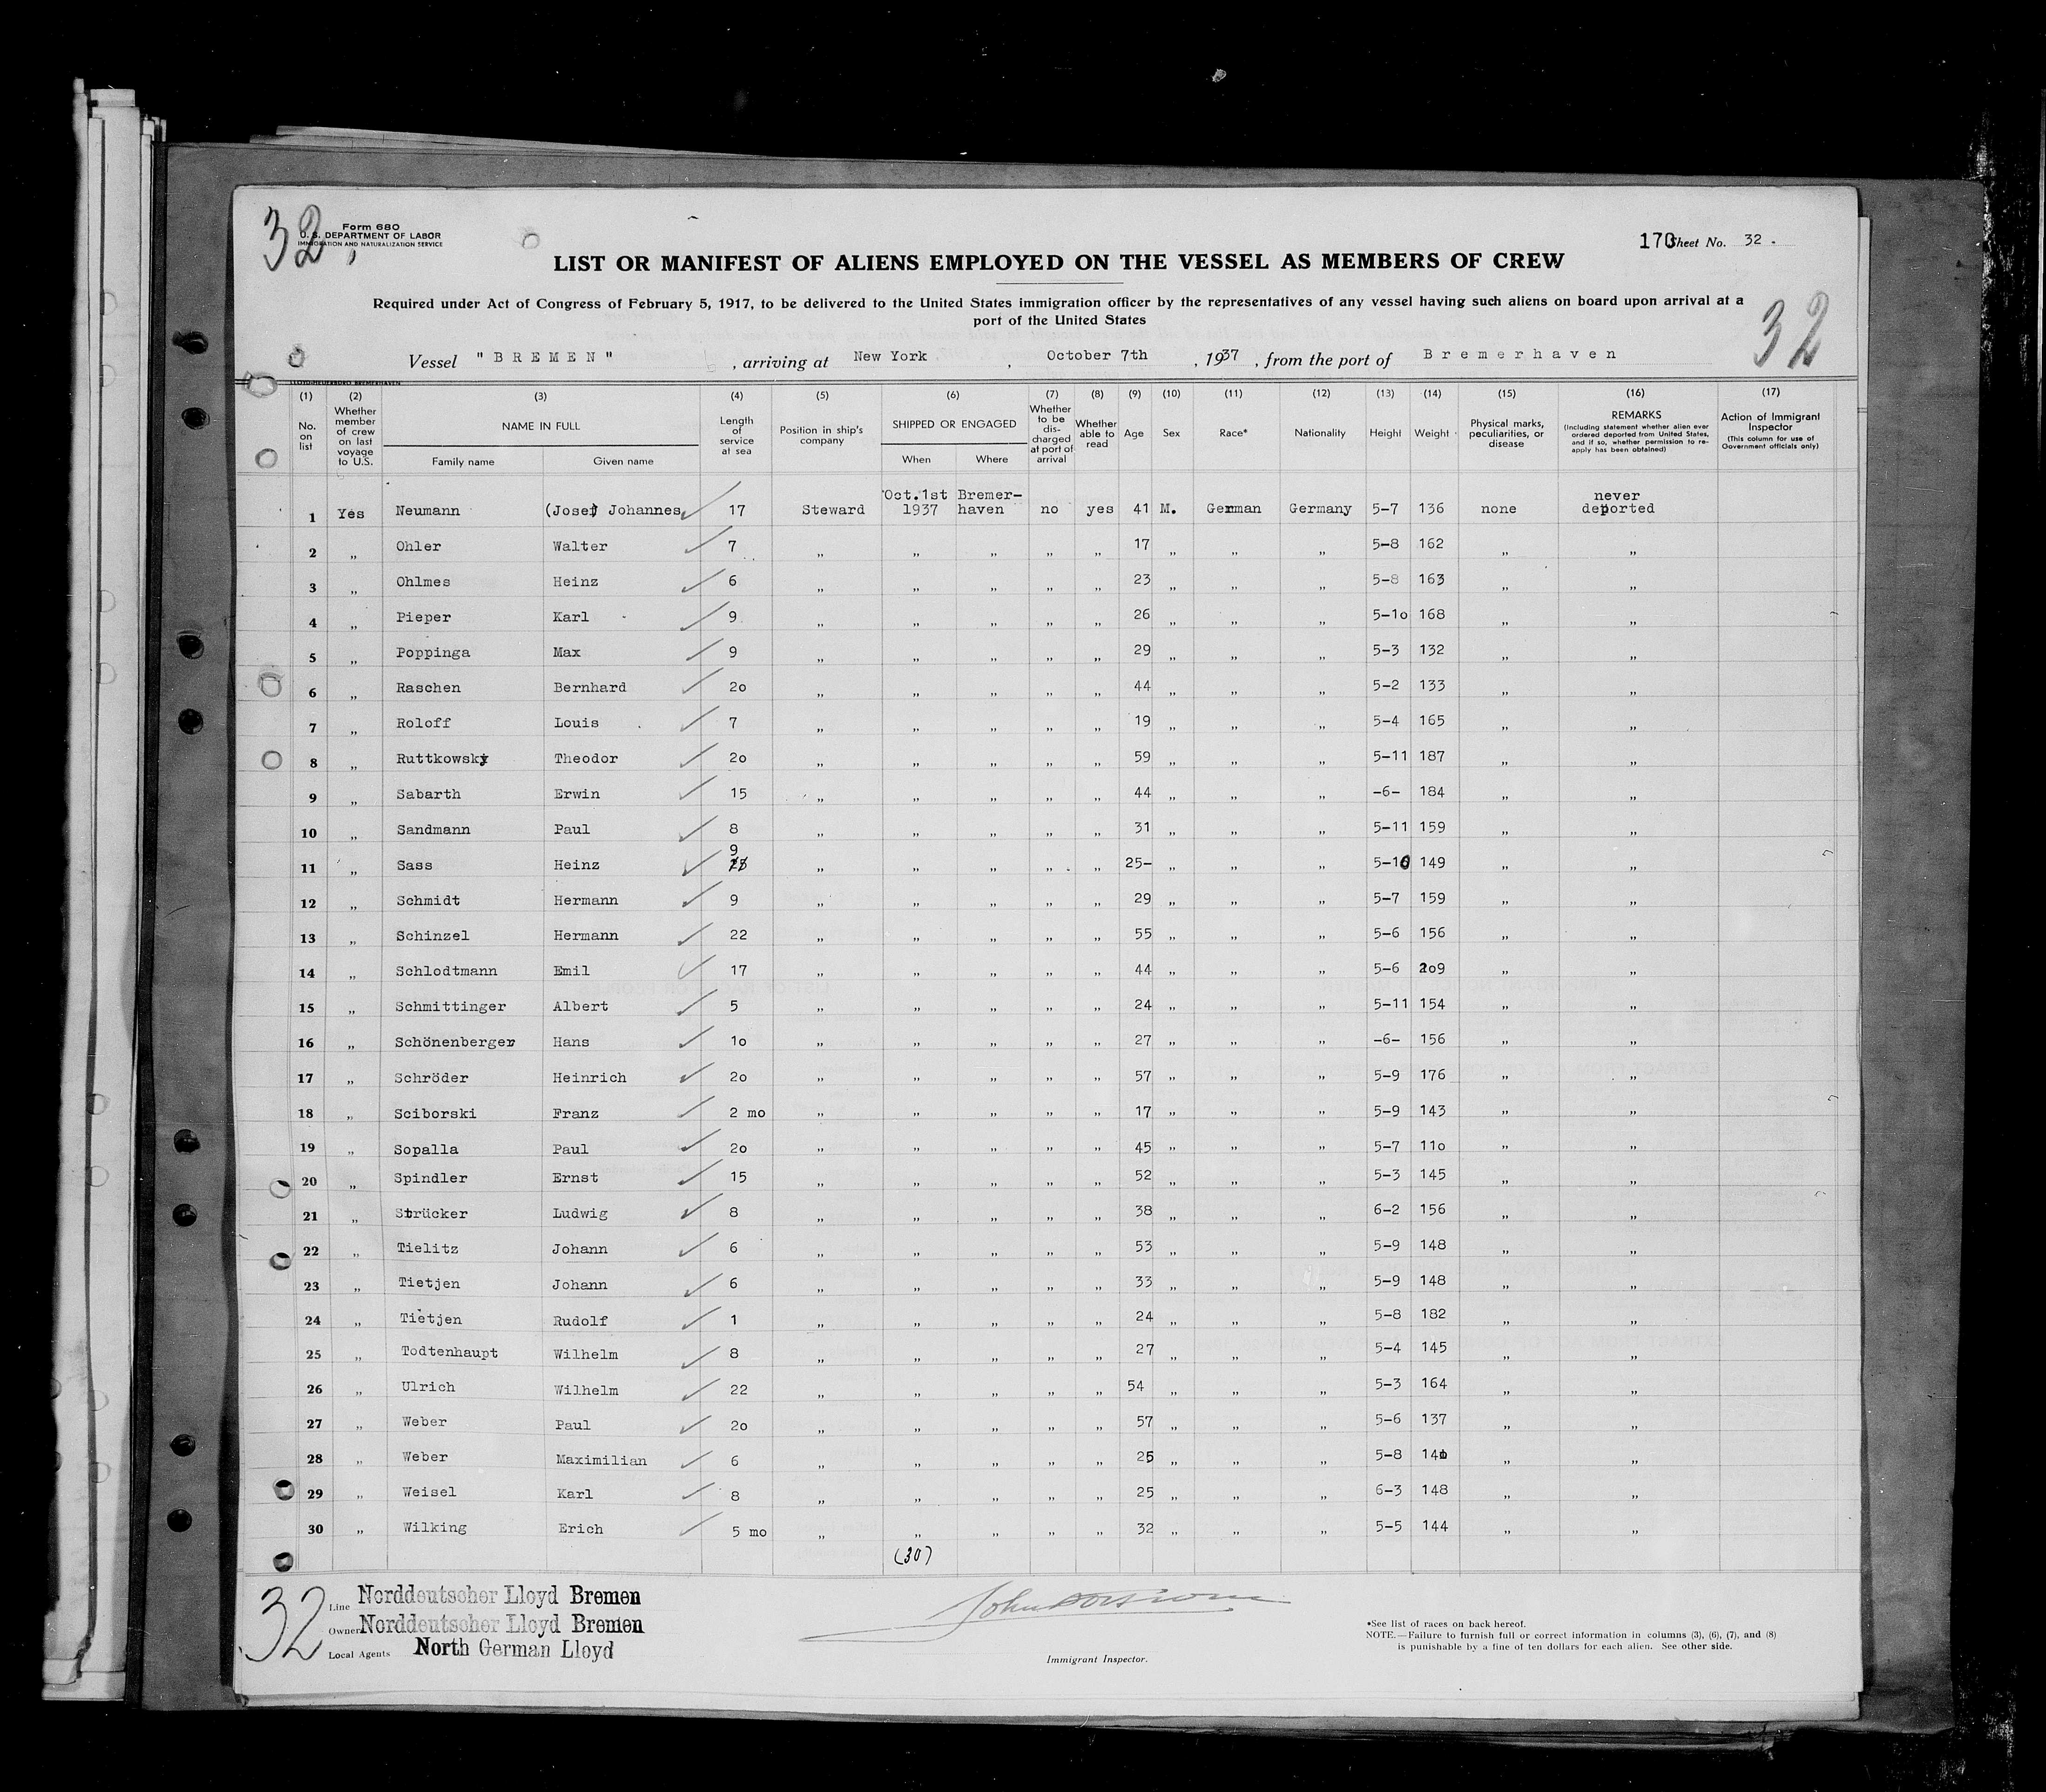 32,
Form 680
U. S. DEPARTMENT OF LABOR
IMMIGRATION AND NATURALIZATION SERVICE
170
Sheet No. 32.
LIST OR MANIFEST OF ALIENS EMPLOYED ON THE VESSEL AS MEMBERS OF CREW
Required under Act of Congress of February 5, 1917, to be delivered to the United States immigration officer by the representatives of any vessel having such aliens on board upon arrival at a
port of the United States
32
Vessel "BREMEN", arriving at New York, October 7th, 1937, from the port of Bremerhaven
(1) (2) (3) (4) (5) (6) (7) (8) (9) (10) (11) (12) (13) (14) (15) (16) (17)
No. on list
Whether member of crew on last voyage to U.S.
NAME IN FULL
Family name Given name
Length of service at sea
Position in ship's company
SHIPPED OR ENGAGED
When Where
Whether to be discharged at port of arrival
Whether able to read
Age
Sex
Race*
Nationality
Height
Weight
Physical marks, peculiarities, or disease
REMARKS
(Including statement whether alien ever ordered deported from United States, and if so, whether permission to reapply has been obtained)
Action of Immigrant Inspector
(This column for use of Government officials only)
1 Yes Neumann (Josef) Johannes 17 Steward Oct.1st 1937 Bremer-haven no yes 41 M. German Germany 5-7 136 none never deported
2 „ Ohler Walter 7 „ „ „ „ „ 17 „ „ „ 5-8 162 „ „
3 „ Ohlmes Heinz 6 „ „ „ „ „ 23 „ „ „ 5-8 163 „ „
4 „ Pieper Karl 9 „ „ „ „ „ 26 „ „ „ 5-10 168 „ „
5 „ Poppinga Max 9 „ „ „ „ „ 29 „ „ „ 5-3 132 „ „
6 „ Raschen Bernhard 20 „ „ „ „ „ 44 „ „ „ 5-2 133 „ „
7 „ Roloff Louis 7 „ „ „ „ „ 19 „ „ „ 5-4 165 „ „
8 „ Ruttkowsky Theodor 20 „ „ „ „ „ 59 „ „ „ 5-11 187 „ „
9 „ Sabarth Erwin 15 „ „ „ „ „ 44 „ „ „ -6- 184 „ „
10 „ Sandmann Paul 8 „ „ „ „ „ 31 „ „ „ 5-11 159 „ „
11 „ Sass Heinz 9 „ „ „ „ „ 25- „ „ „ 5-10 149 „ „
12 „ Schmidt Hermann 9 „ „ „ „ „ 29 „ „ „ 5-7 159 „ „
13 „ Schinzel Hermann 22 „ „ „ „ „ 55 „ „ „ 5-6 156 „ „
14 „ Schlodtmann Emil 17 „ „ „ „ „ 44 „ „ „ 5-6 209 „ „
15 „ Schmittinger Albert 5 „ „ „ „ „ 24 „ „ „ 5-11 154 „ „
16 „ Schönenberger Hans 10 „ „ „ „ „ 27 „ „ „ -6- 156 „ „
17 „ Schröder Heinrich 20 „ „ „ „ „ 57 „ „ „ 5-9 176 „ „
18 „ Sciborski Franz 2 mo „ „ „ „ „ 17 „ „ „ 5-9 143 „ „
19 „ Sopalla Paul 20 „ „ „ „ „ 45 „ „ „ 5-7 110 „ „
20 „ Spindler Ernst 15 „ „ „ „ „ 52 „ „ „ 5-3 145 „ „
21 „ Strücker Ludwig 8 „ „ „ „ „ 38 „ „ „ 6-2 156 „ „
22 „ Tielitz Johann 6 „ „ „ „ „ 53 „ „ „ 5-9 148 „ „
23 „ Tietjen Johann 6 „ „ „ „ „ 33 „ „ „ 5-9 148 „ „
24 „ Tietjen Rudolf 1 „ „ „ „ „ 24 „ „ „ 5-8 182 „ „
25 „ Todtenhaupt Wilhelm 8 „ „ „ „ „ 27 „ „ „ 5-4 145 „ „
26 „ Ulrich Wilhelm 22 „ „ „ „ „ 54 „ „ „ 5-3 164 „ „
27 „ Weber Paul 20 „ „ „ „ „ 57 „ „ „ 5-6 137 „ „
28 „ Weber Maximilian 6 „ „ „ „ „ 25 „ „ „ 5-8 „ „
29 „ Weisel Karl 8 „ „ „ „ „ 25 „ „ „ 6-3 148 „ „
30 „ Wilking Erich 5 mo „ „ „ „ „ 32 „ „ „ 5-5 144 „ „
(30)
32
Line Norddeutscher Lloyd Bremen
Owner Norddeutscher Lloyd Bremen
Local Agents North German Lloyd
Immigrant Inspector.
*See list of races on back hereof.
NOTE.—Failure to furnish full or correct information in columns (3), (6), (7), and (8)
is punishable by a fine of ten dollars for each alien. See other side.